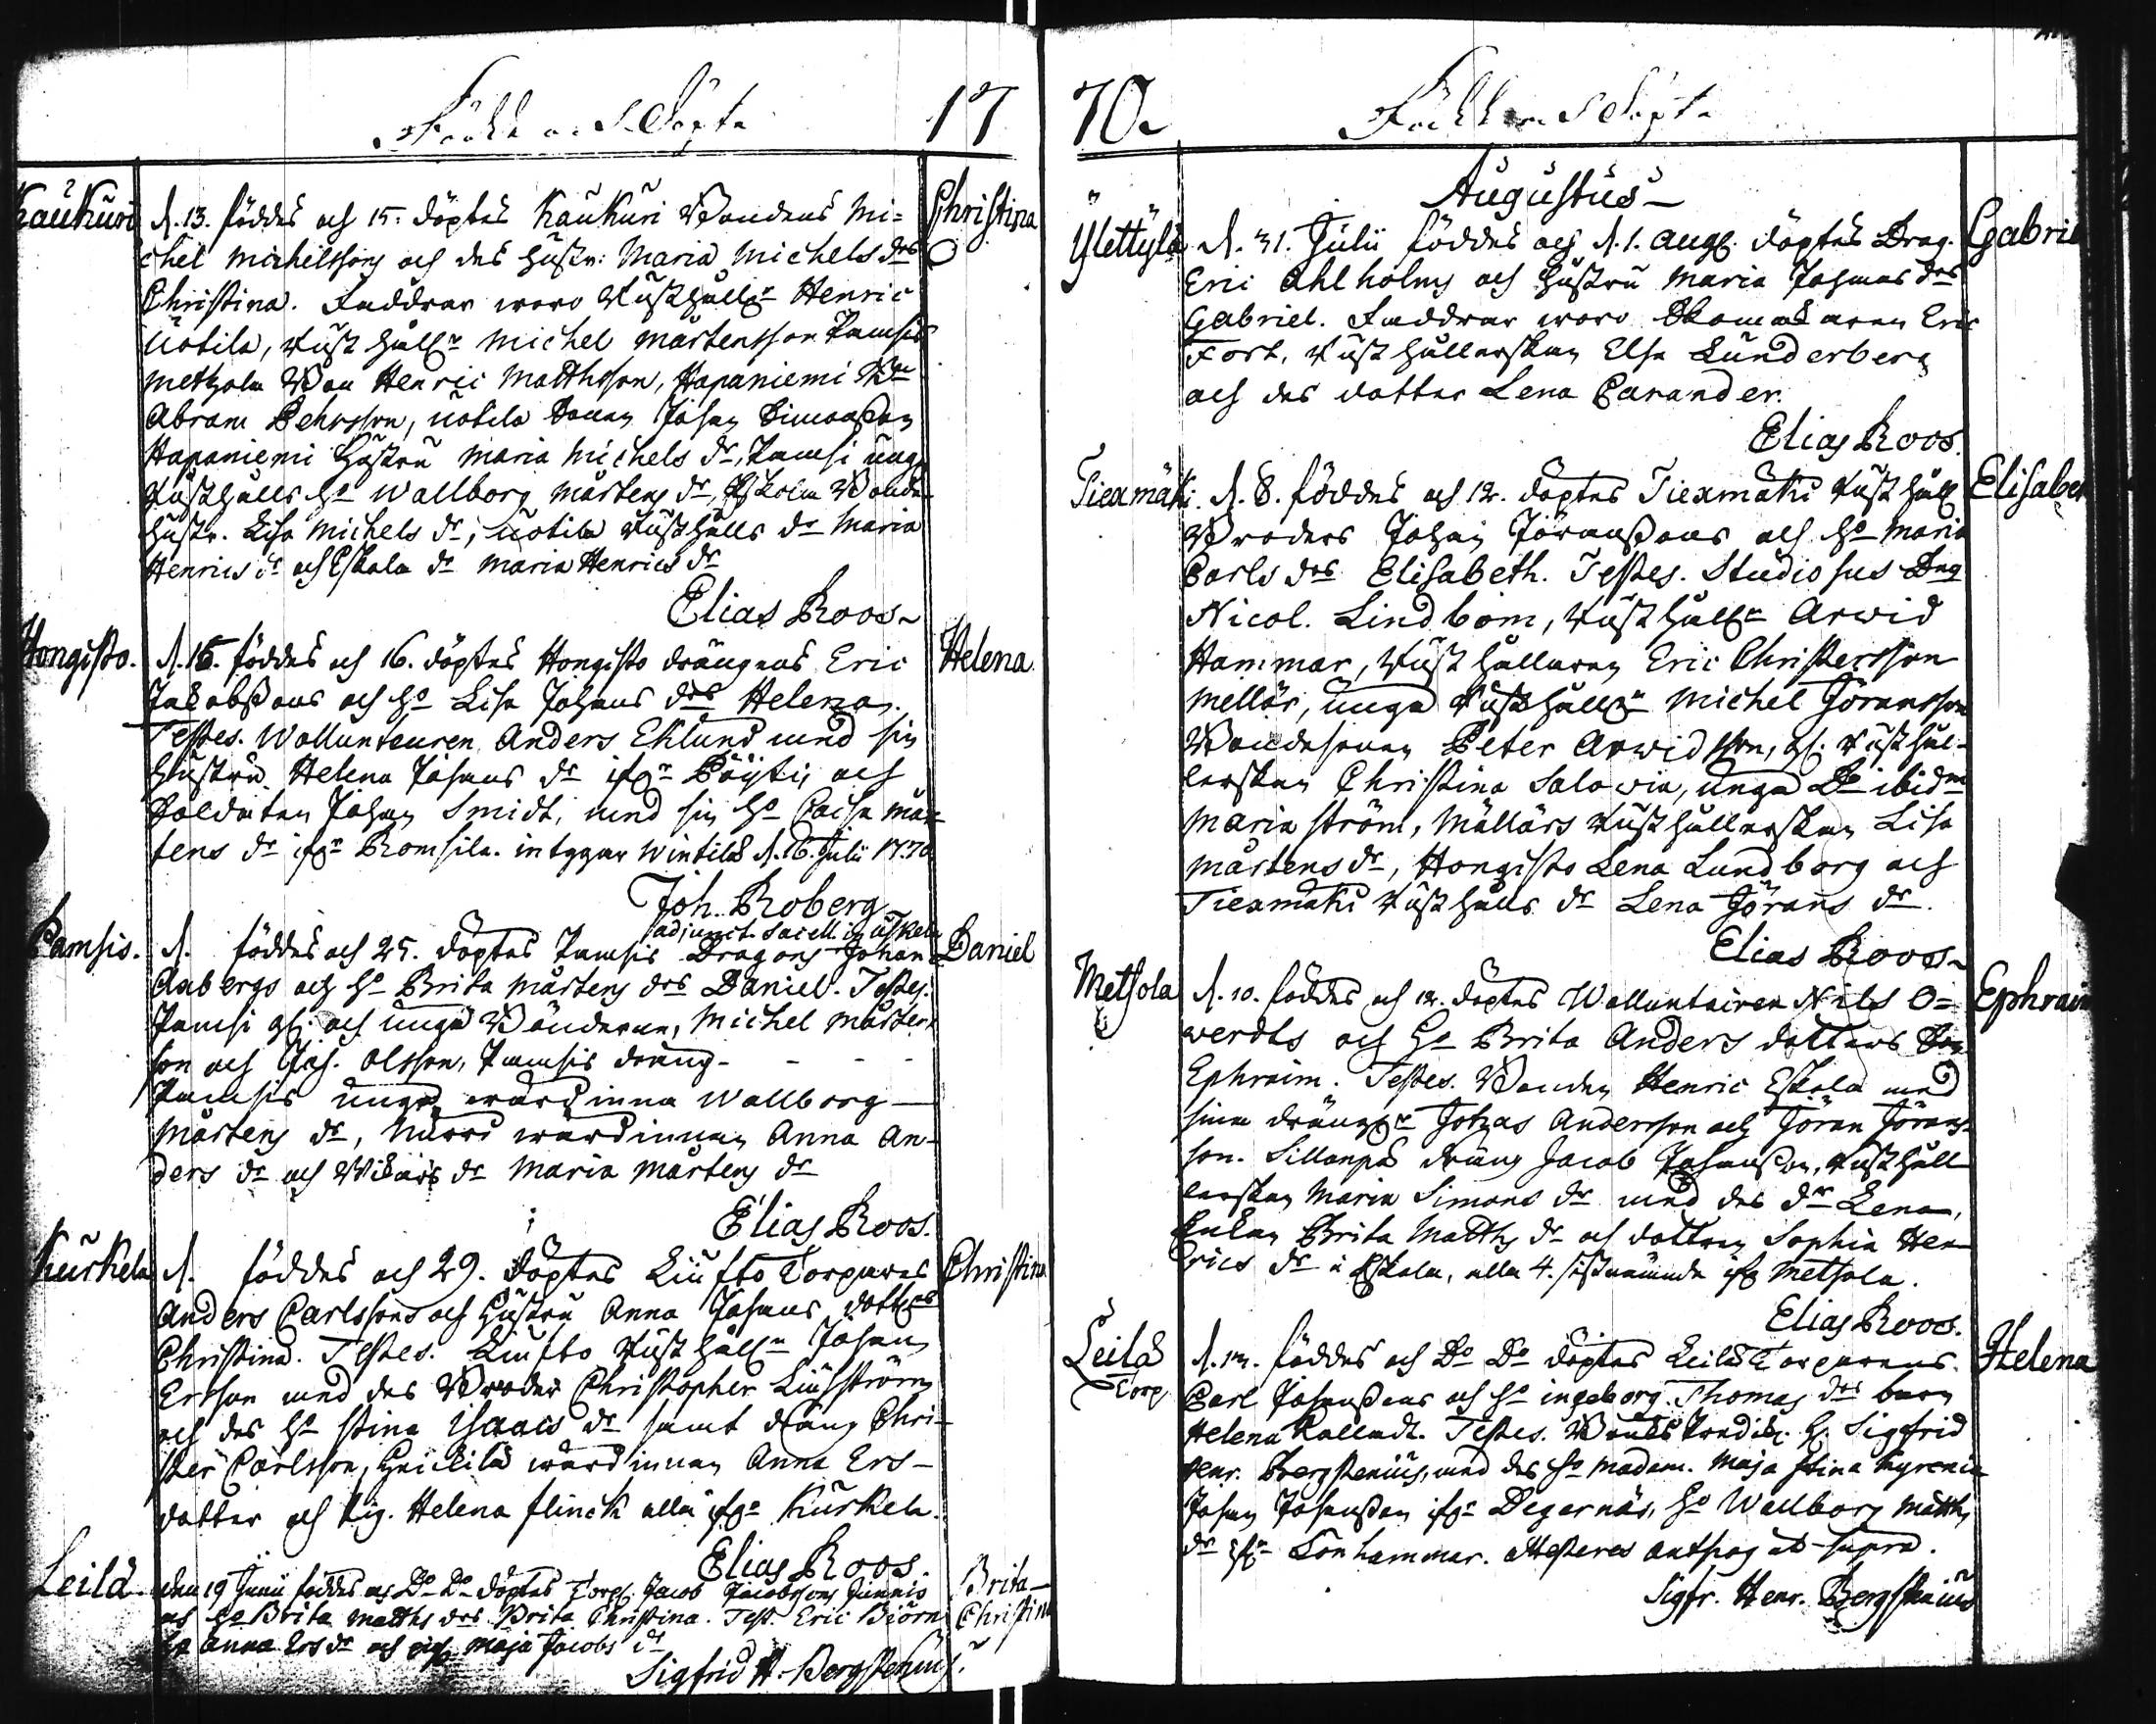 Födde och Döpte 17
Kaukuri d. 13. föddes och 15. döptes Kaukuri Bondens Mi= Christina
chel Michelssons och des hustr: Maria Michels drs
Christina. Faddrar woro Rusthåll:n Henric
Uotila, Rusthåll:n Michel Mårtensson Pamsis
Metzola Bon Henric Matthsson, Hapaniemi Bn
Abram Pehrsson, Uotila Sonen Johan Simonsson
Hapaniemi Hustru Maria Michels dr, Pamsi unga
Rusthålls ho Wallborg Mårtens dr, Eskola Bonde
hustr. Lisa Michels dr, Uotila Rusthålls dr Maria
Henrics dr och Eskola dr Maria Henrics dr
Elias Roos
Hongisto. d. 15. föddes och 16. döptes Hongisto drängens Eric Helena
Jacobssons och ho Lisa Johans drs Helena.
Testes. Wolunteuren Anders Eklund med sin
hustru Helena Johans dr ifrn Böyti, och
Soldaten Johan Smidt, med sin ho Caisa Mår-
tens dr ifrn Romsila. intygar Wintilä d. 16. Julii 1770
Joh. Roberg
adjunct. Sacell. in Uskela
Pamsis. d. föddes och 25. döptes Pamsis Dragons Johan Daniel
Aabergs och ho Brita Mårtens drs Daniel. Testes.
Pamsi gl. och unga Bönderne, Michel Mårtens
son och Joh. Olsson, Pamsis dräng - - - -
Pamsis unga wärdinna Wallborg
Mårtens dr, Nurri wärdinnan Anna An-
ders dr och Wikars dr Maria Mårtens dr
Elias Roos.
Kurkela d. föddes och 29. döptes Liufto Torpares Christina
Anders Carlssons och Hustru Anna Johans dotters
Christina. Testes. Liufto Rusthåll:n Johan
Ersson med des Broder Christopher Liufström
och des ho Stina Isaacs dr samt dräng Chri-
ster Carlsson, wärdinnan Anna Ers-
dotter och pig. Helena Flinck alla ifrn Kurkela.
Elias Roos.
Leilä den 19 Junii föddes och Do Do döptes Torp. Jacob Jacobssons Brita
och ho Brita Matths drs Brita Christina. Test. Eric Biörn Christina
Anna Ers dr och pig. Maja Jacobs dr
Sigfrid H. Bergstenius.
70. Födde och Döpte
Augustus
Ylettylä d. 31. Julii föddes och d. 1. Aug. döptes Drag. Gabriel
Eric Ahlholms och hustru Maria Johans drs
Gabriel. Faddrar woro Skomakaren Eric
Fort, Rusthållerskan Elsa Lunderberg
och des dotter Lena Carander.
Elias Roos.
Tiexmäki. d. 8. föddes och 12. döptes Tiexmäki Rusthåll Elisabet
Broders Johan Jöranssons och ho Maria
Carls drs Elisabeth. Testes. Studiosus Dng
Nicol. Lindbom, Rusthåll:n Arwid
Hammar, Rusthållaren Eric Christersson
Mellår, unga Rusthåll:n Michel Göransson
Bondesonen Peter Arwidsson, gl. Rusthål-
lerskan Christina Salovia, unga Do ibidm
Maria Ström, Mällårs Rusthållerskan Lisa
Mårtens dr, Hongisto Lena Lundborg och
Tiexmäki Rusthålls dr Lena Görans dr.
Elias Roos
Metsola d. 10. föddes och 12. döptes Wolluntairen Nils O= Ephraim
werdts och ho Brita Anders dotters Son
Ephraim. Testes. Bonden Henric Eskola med
sina dränger Johan Andersson och Jöran Jörans-
son. Sillanpä dräng Jacob Johansson, Rusthåll
lerskan Maria Simons dr med des dr Lena,
Enkan Brita Matths dr och dottren Sophia Hen
rics dr i Eskola, alla 4. sistnämnde ifr Metsola.
Elias Roos.
Leilä Torp d. 12. föddes och Do Do döptes Leilä Torparens Helena
Carl Johanssons och ho Ingeborg Thomas drs barn
Helena kalladt. Testes. Bruks Predik. H. Sigfrid
Henr. Bergstenius, med des ho Madam. Maja Stina Kyrenia
Johan Johansson ifrn Degernäs, ho Wallborg Matths
dr ifrn Lonhammar. Attesteres anthog ut supra.
Sigfr. Henr. Bergstenius